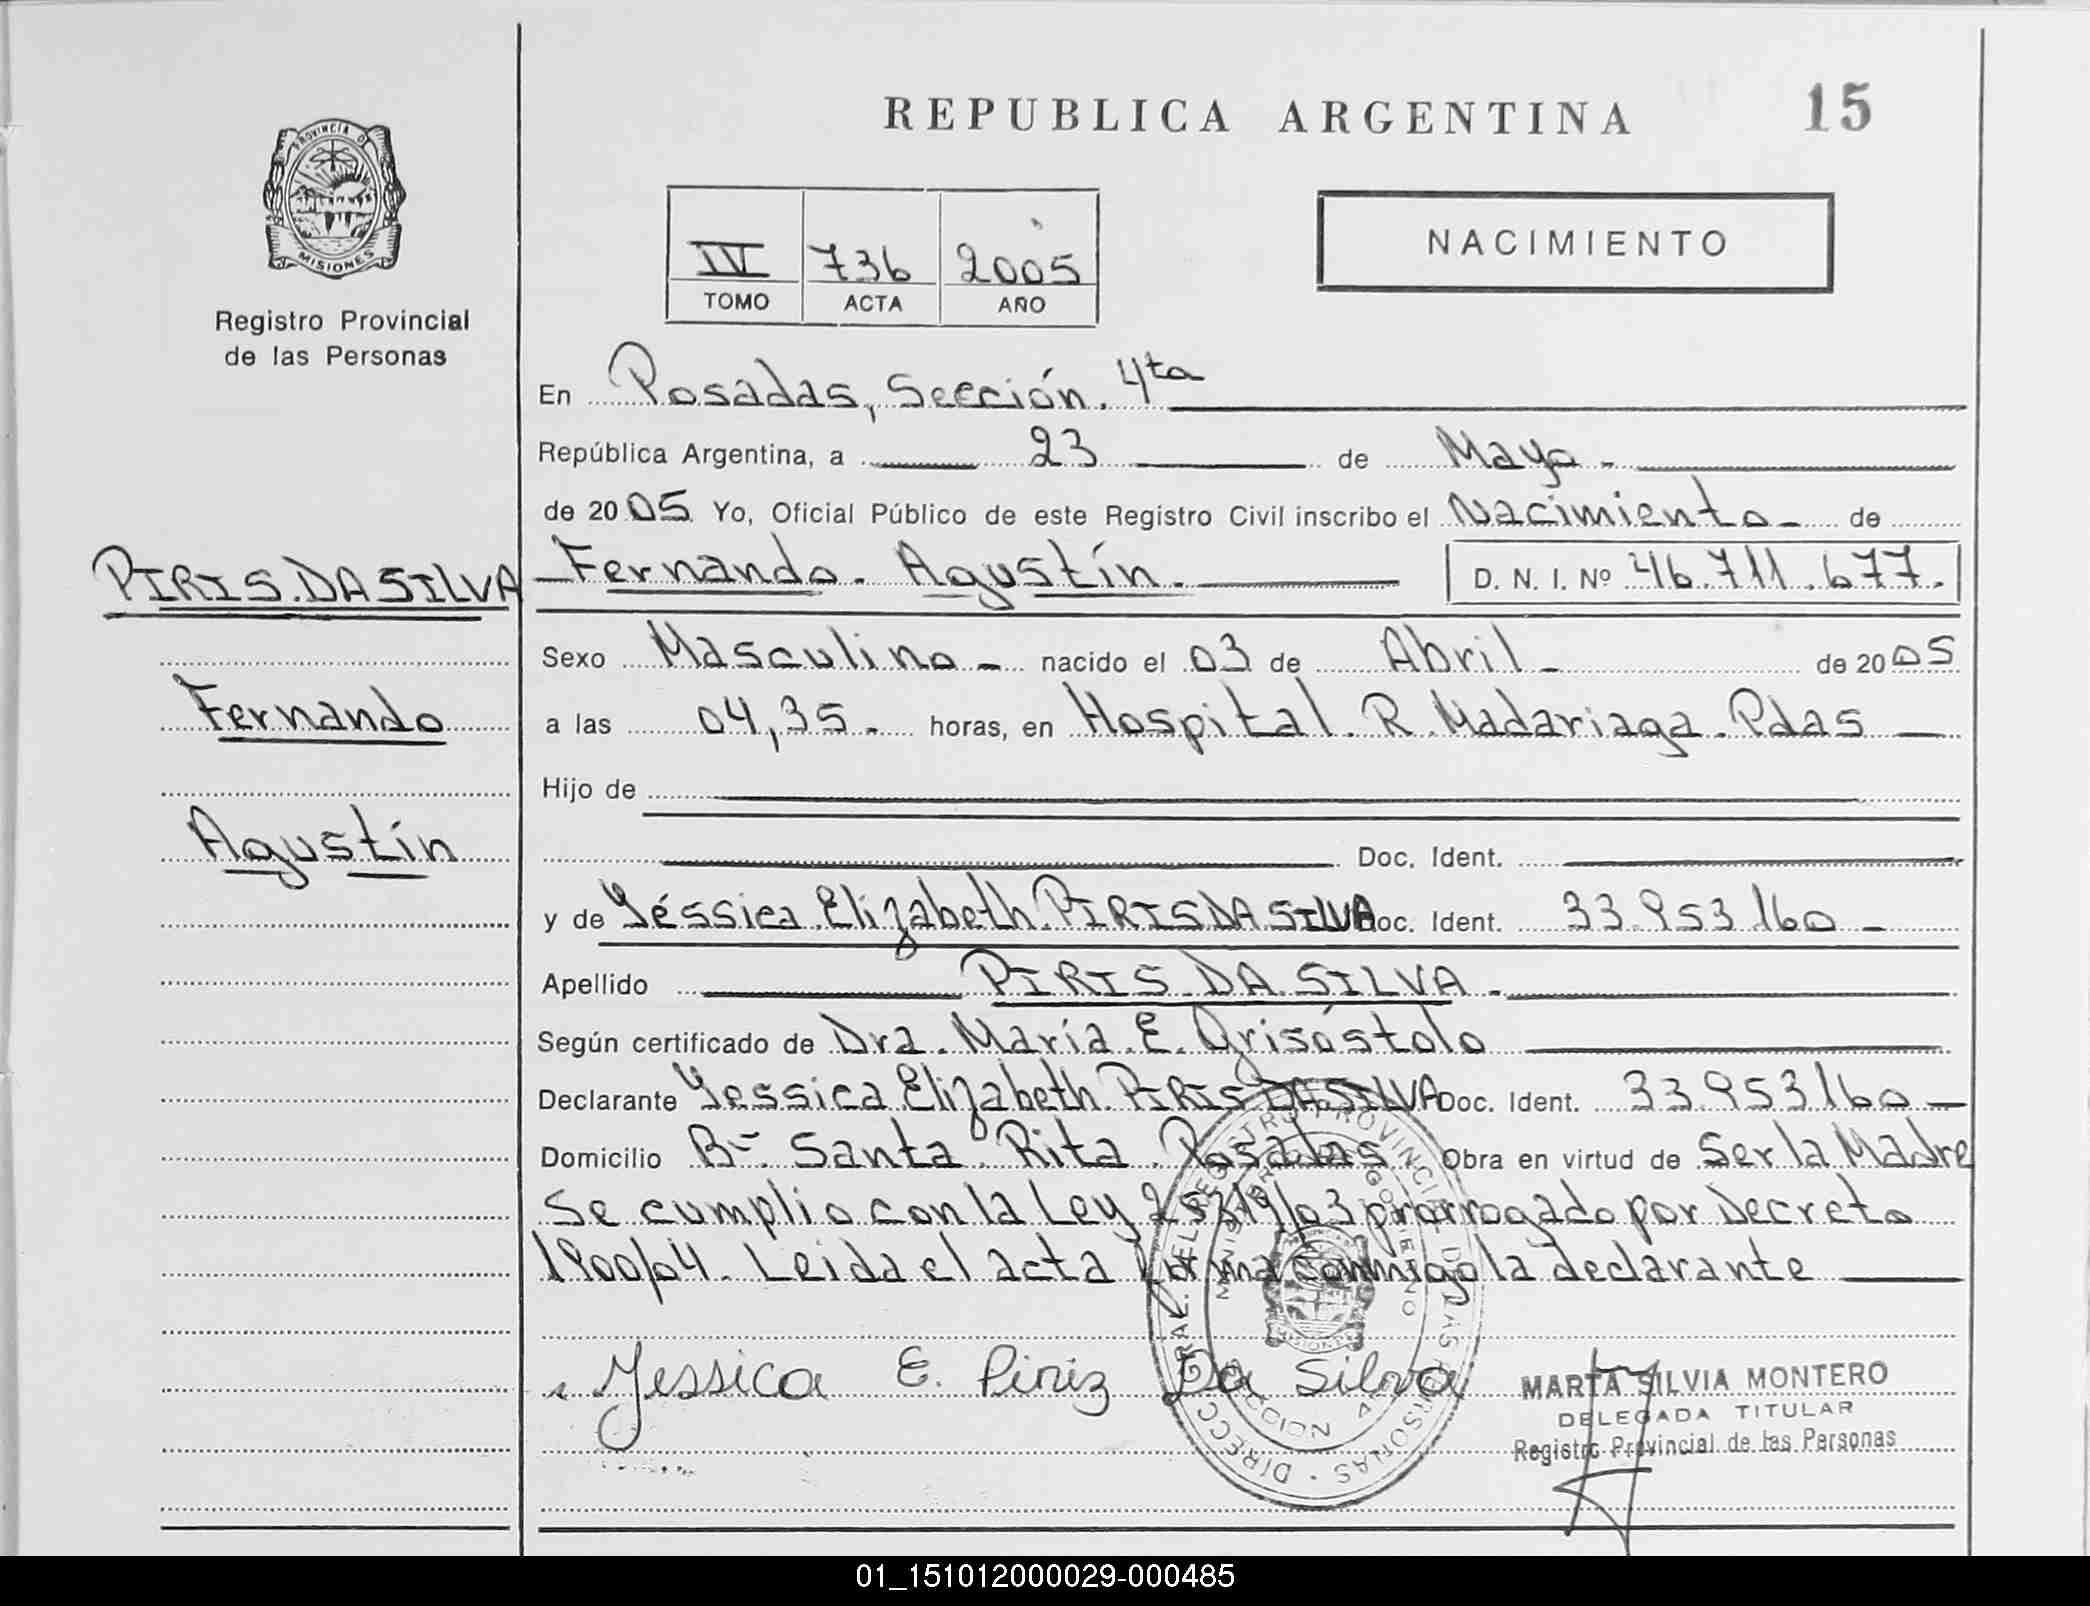 REPUBLICA ARGENTINA
15
PROVINCIA DE
MISIONES
Registro Provincial
de las Personas
IV 736 2005
TOMO ACTA AÑO
NACIMIENTO
En Posadas, Sección. 4ta
República Argentina, a 23 de Mayo -
de 2005 Yo, Oficial Público de este Registro Civil inscribo el Nacimiento - de
PIRIS. DA SILVA
Fernando. Agustín. D. N. I. Nº 46.711.677.
Sexo Masculino - nacido el 03 de Abril - de 2005
Fernando
a las 04,35 - horas, en Hospital. R. Madariaga. Pdas
Hijo de
Agustín
Doc. Ident.
y de Yéssica Elizabeth PIRIS DA SILVA Doc. Ident. 33.953.160 -
Apellido PIRIS DA SILVA -
Según certificado de Dra. María E. Grisóstolo
Declarante Yessica Elizabeth PIRIS DA SILVA Doc. Ident. 33.953160 -
Domicilio Bº Santa Rita. Posadas Obra en virtud de Ser la Madre
Se cumplio con la Ley 25819/03 prorrogado por Decreto
1900/04. Leida el acta firma conmigo la declarante
Yessica E. Piriz Da Silva
DIRECC. GRAL. DEL REGISTRO PROVINCIAL DE LAS PERSONAS
GOBIERNO
SECCION 4
MARTA SILVIA MONTERO
DELEGADA TITULAR
Registro Provincial de las Personas
01_151012000029-000485